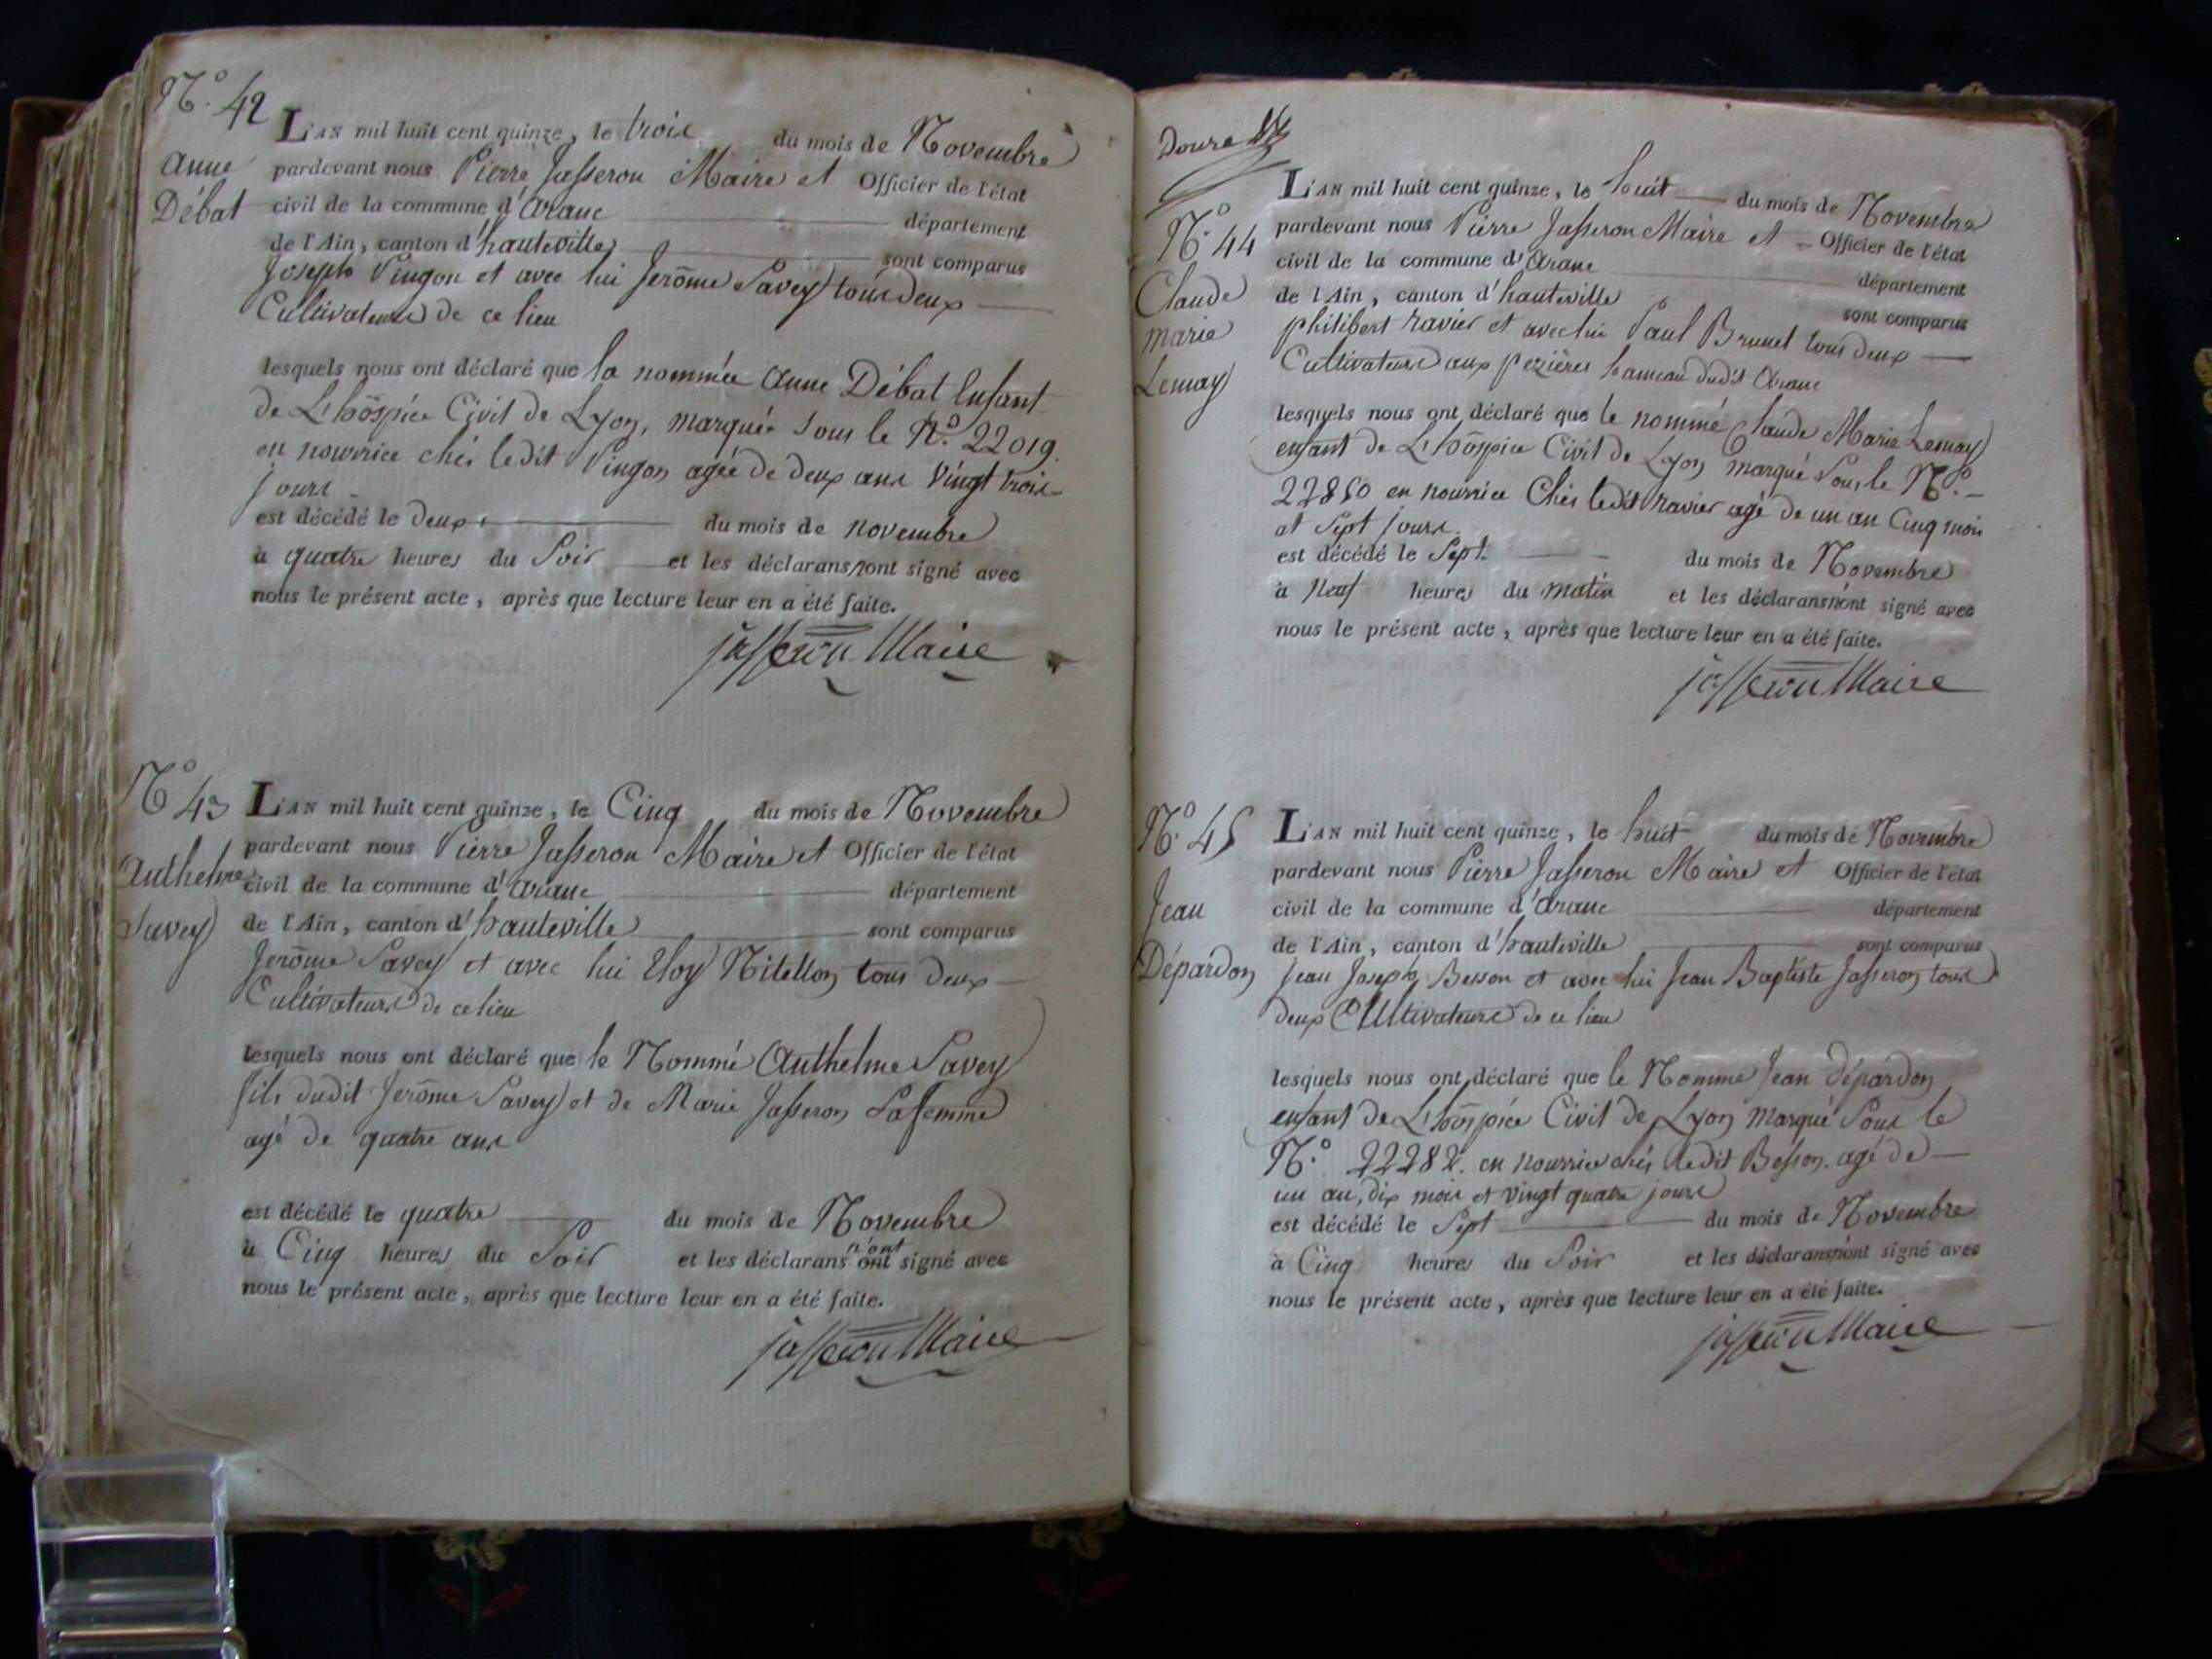 N.o 42
Anne
Débat
L'AN mil huit cent quinze, le trois du mois de Novembre
pardevant nous Pierre Jasseron Maire et Officier de l'état
civil de la commune d'Aranc département
de l'Ain, canton d'hauteville sont comparus
Joseph Pingon et avec lui Jerôme Savey tous deux
Cultivateurs de ce lieu
lesquels nous ont déclaré que la nommée Anne Débat Enfant
de L'hôspice Civil de Lyon, marquée sous le N.o 22019.
en nourrice chés ledit Pingon agée de deux ans vingt trois
jours
est décédé le deux du mois de novembre
à quatre heures du Soir et les déclarans n'ont signé avec
nous le présent acte, après que lecture leur en a été faite.
jasseron Maire
N.o 43
Anthelme
Savey
L'AN mil huit cent quinze, le Cinq du mois de Novembre
pardevant nous Pierre Jasseron Maire et Officier de l'état
civil de la commune d'Aranc département
de l'Ain, canton d'hauteville sont comparus
Jerôme Savey et avec lui Eloy Nitellon tous deux
Cultivateurs de ce lieu
lesquels nous ont déclaré que le Nommé Anthelme Savey
fils dudit Jerôme Savey et de Marie Jasseron Sa femme
agé de quatre ans
est décédé le quatre du mois de Novembre
à Cinq heures du Soir et les déclarans n'ont ont signé avec
nous le présent acte, après que lecture leur en a été faite.
jasseron Maire
Douze
N.o 44
Claude
marie
Lemay
L'AN mil huit cent quinze, le huit du mois de Novembre
pardevant nous Pierre Jasseron Maire et Officier de l'état
civil de la commune d'Aranc département
de l'Ain, canton d'hauteville sont comparus
philibert ravier et avec lui Paul Brunet tous deux
Cultivateurs aux pezières hameau dudit Aranc
lesquels nous ont déclaré que le nommé Claude Marie Lemay
enfant de L'hôspice Civil de Lyon marqué Sous le N.o
22850 en nourrice Chés ledit ravier agé de un an Cinq mois
et Sept jours
est décédé le Sept du mois de Novembre
à Neuf heures du matin et les déclarans n'ont signé avec
nous le présent acte, après que lecture leur en a été faite.
jasseron Maire
N.o 45
Jean
Dépardon
L'AN mil huit cent quinze, le huit du mois de Novembre
pardevant nous Pierre Jasseron Maire et Officier de l'état
civil de la commune d'Aranc département
de l'Ain, canton d'hauteville sont comparus
Jean Joseph Besson et avec lui Jean Baptiste Jasseron tous
deux Cultivateurs de ce lieu
lesquels nous ont déclaré que le Nomme Jean dépardon
enfant de L'hôspice Civil de Lyon marqué Sous le
N.o 22282. en nourrice chés ledit Besson. agé de
un an, dix mois et vingt quatre jours
est décédé le Sept du mois de Novembre
à Cinq heures du Soir et les déclarans n'ont signé avec
nous le présent acte, après que lecture leur en a été faite.
jasseron Maire